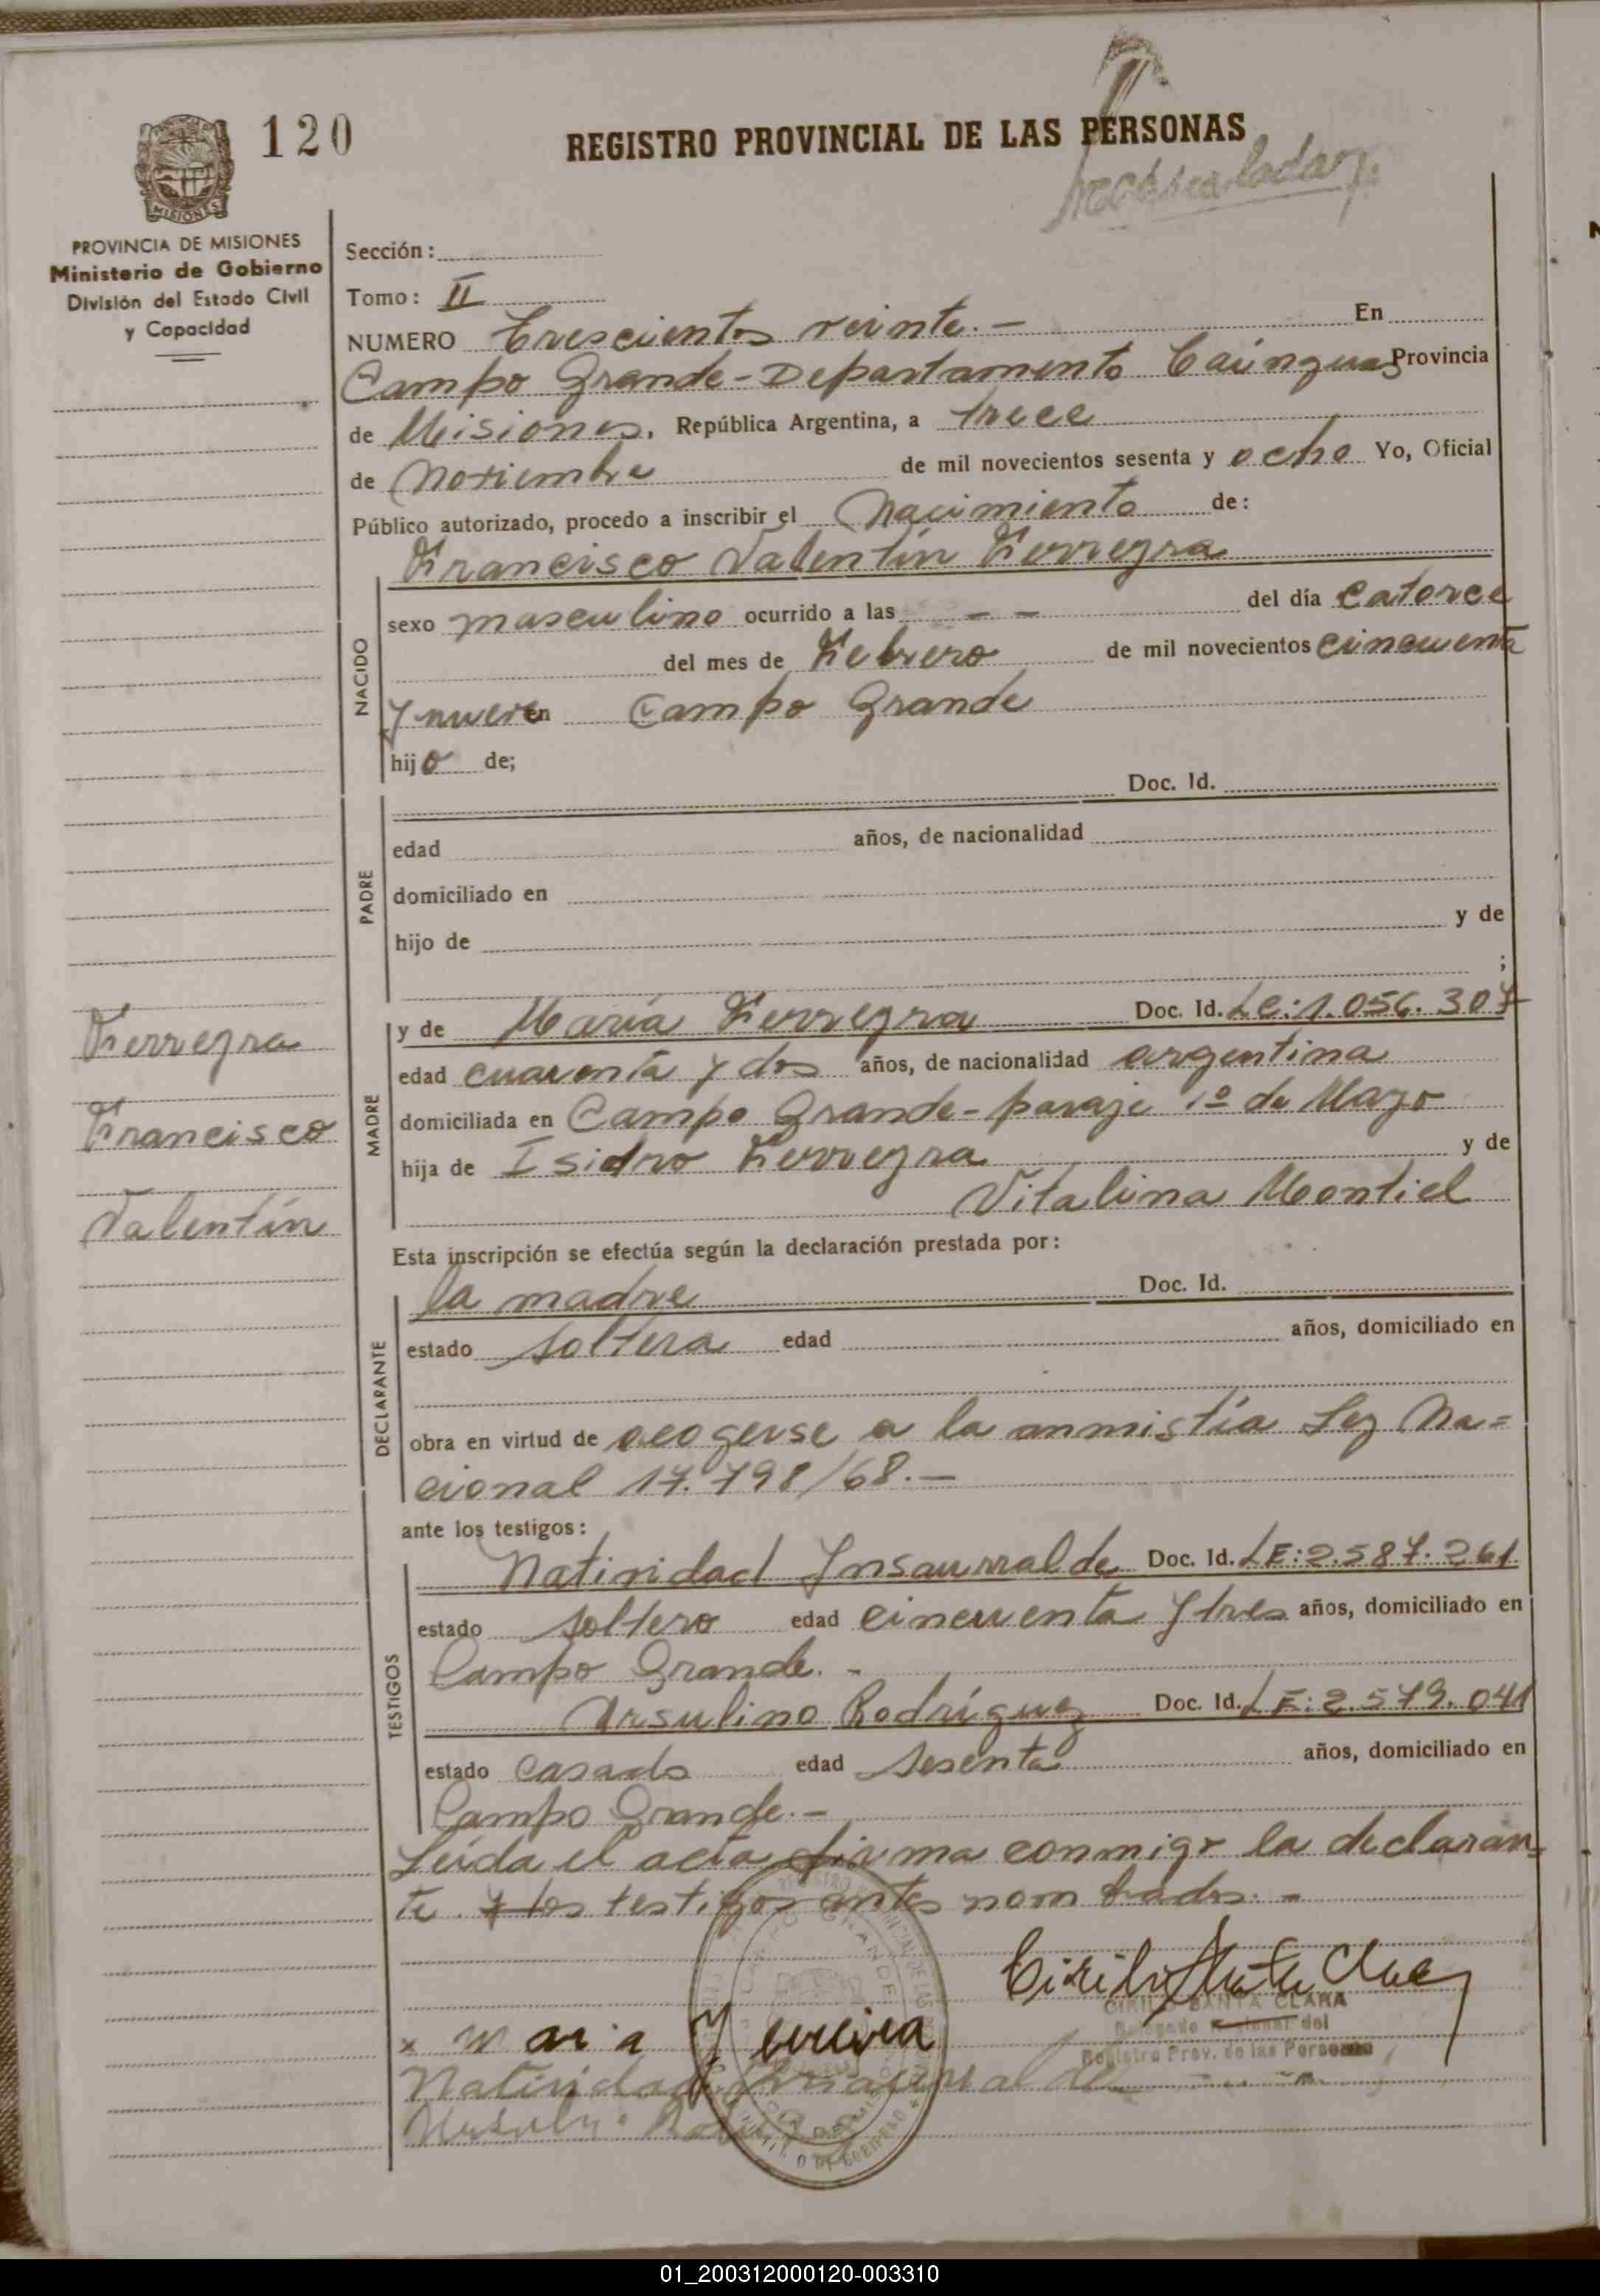 120
REGISTRO PROVINCIAL DE LAS PERSONAS
MISIONES
PROVINCIA DE MISIONES
Ministerio de Gobierno
División del Estado Civil
y Capacidad
Sección:
Tomo: II
NUMERO Trescientos veinte.- En
Campo Grande-Departamento Caingúas Provincia
de Misiones, República Argentina, a trece
de Noviembre de mil novecientos sesenta y ocho Yo, Oficial
Público autorizado, procedo a inscribir el Nacimiento de:
Francisco Valentín Ferreyra
NACIDO
sexo masculino ocurrido a las - - del día catorce
del mes de Febrero de mil novecientos cincuenta
y nueve en Campo Grande
hijo de;
PADRE
Doc. Id.
edad años, de nacionalidad
domiciliado en
hijo de y de
;
MADRE
y de María Ferreyra Doc. Id. LC:1.056.307
edad cuarenta y dos años, de nacionalidad argentina
domiciliada en Campo Grande-paraje 1º de Mayo
hija de Isidro Ferreyra y de
Vitalina Montiel
Ferreyra
Francisco
Valentín
Esta inscripción se efectúa según la declaración prestada por:
DECLARANTE
la madre Doc. Id.
estado soltera edad años, domiciliado en
obra en virtud de acogerse a la anmistía Ley Na=
cional 17.798/68.-
ante los testigos:
TESTIGOS
Natividad Insaurralde Doc. Id. LE:2.587.261
estado soltero edad cincuenta y tres años, domiciliado en
Campo Grande.-
Ursulino Rodríguez Doc. Id. LE:2.579.041
estado casado edad sesenta años, domiciliado en
Campo Grande.-
Leída el acta firma conmigo la declaran=
te y los testigos antes nombrados.-
CIRILO SANTA CLARA
del
Registro Prov. de las Personas
x maria
Natividad Insaurralde
01_200312000120-003310